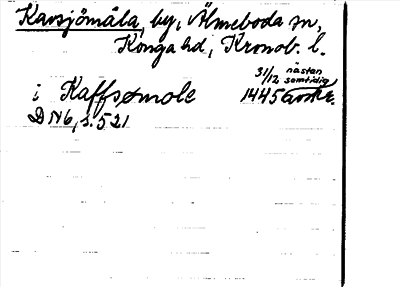 Kavsjömåla, by, Älmeboda sn,
Konga hd, Kronob. l.
i Kaffsømole 31/12 1445 nästan samtidig avskr.
DN6, s. 521